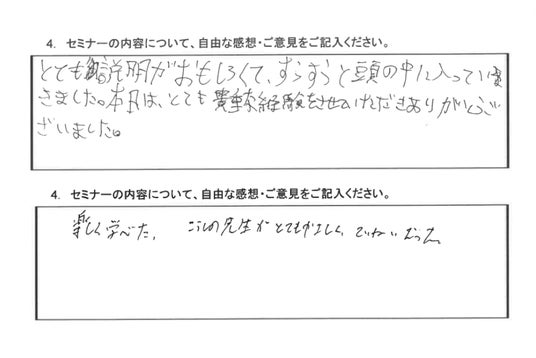 4. セミナーの内容について、自由な感想・ご意見をご記入ください。
とても説明がおもしろくて、すらすらと頭の中に入っていき
きました。本日は、とても貴重な経験をさせていただきありがとうご
ざいました。
4. セミナーの内容について、自由な感想・ご意見をご記入ください。
楽しく学べた。 の先生がとてもやさしく、ていねいだった